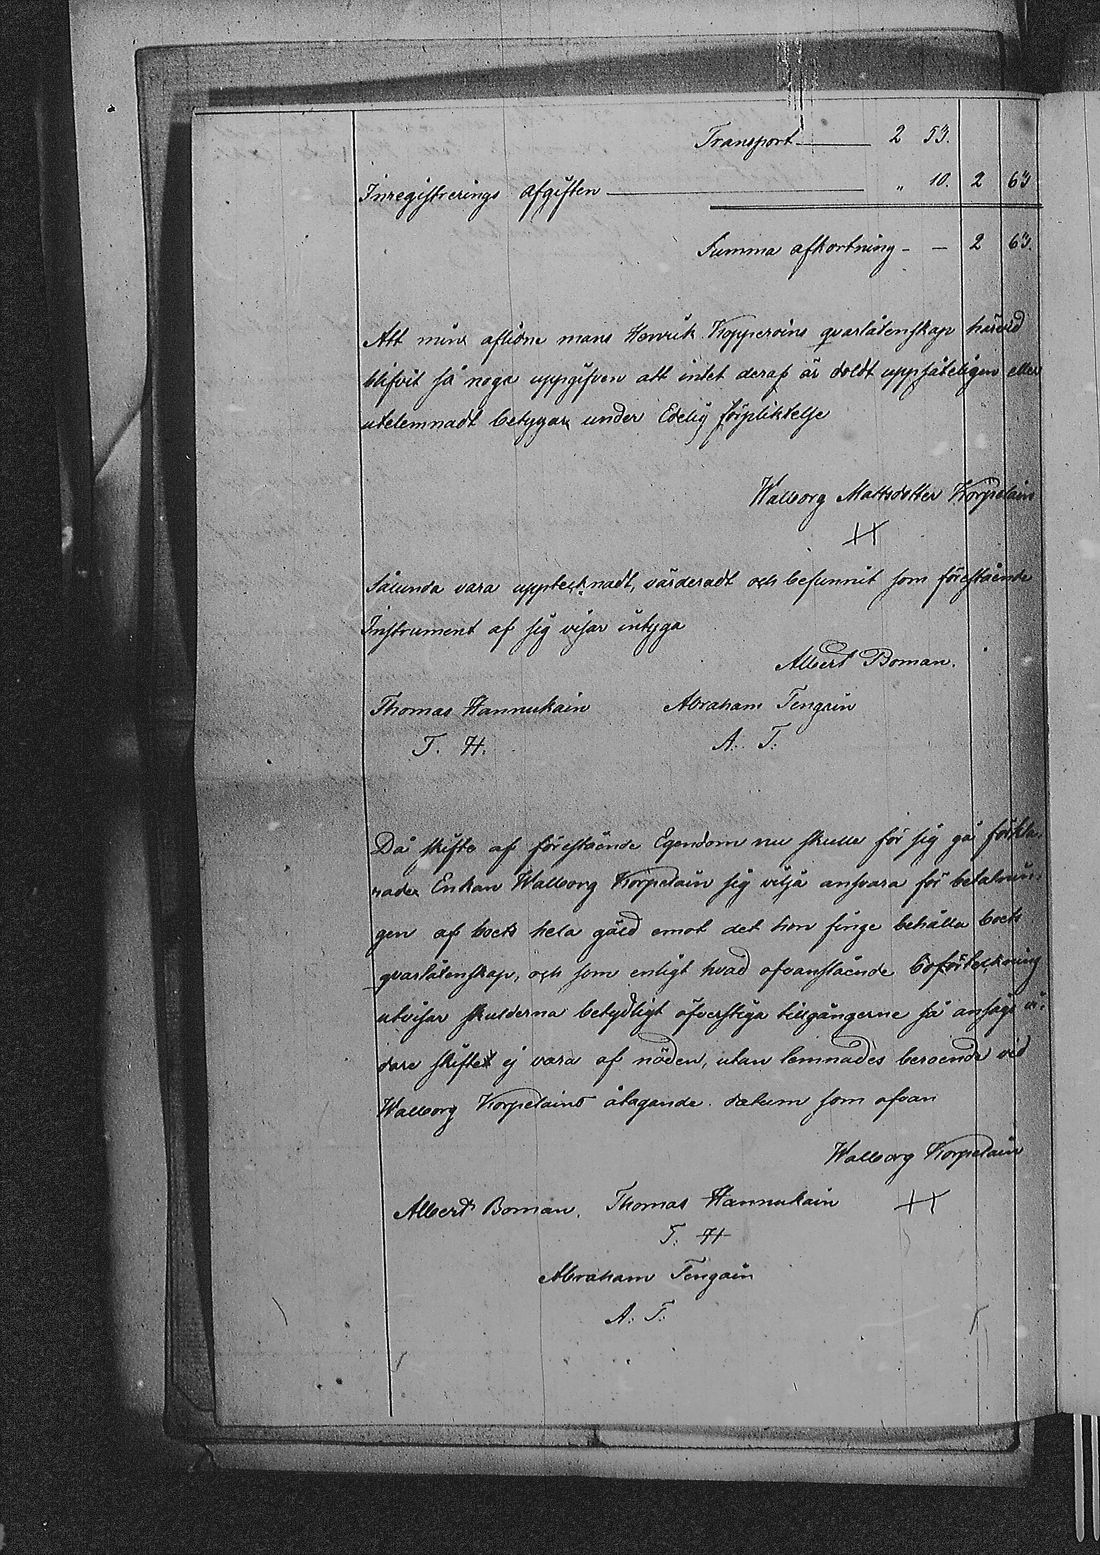 Transport 2 53.
Inregistrerings afgiften " 10. 2 63
Summa afkortning - - 2 63.
Att min aflidne mans Henrik Kopperoins qvarlåtenskap härvid
blifvit så noga uppgifven att intet deraf är doldt uppsåteligen eller
utelemnadt betygar under Edelig förpliktelse
Walborg Mattsdotter Korpelain
Sålunda vara upptecknadt, värderadt och befunnit som förestående
Instrument af sig visar intyga
Albert Boman.
Thomas Hannukain Abraham Tengain
T. H. A. T.
Då skifte af förestående Egendom nu skulle för sig gå förkla-
rade Enkan Walborg Korpelain sig vilja ansvara för betalnin-
gen af boets hela gäld emot det hon finge behålla boets
qvarlåtenskap, och som enligt hvad ofvanstående boförteckning
utvisar skulderna betydligt öfverstiga tillgångerne så ansågs vi-
dare skifte ej vara af nöden, utan lemnades beroende vid
Walborg Korpelains åtagande. datum som ofvan
Walborg Korpelain
Albert Boman. Thomas Hannukain
T. H
Abraham Tengain
A. T.